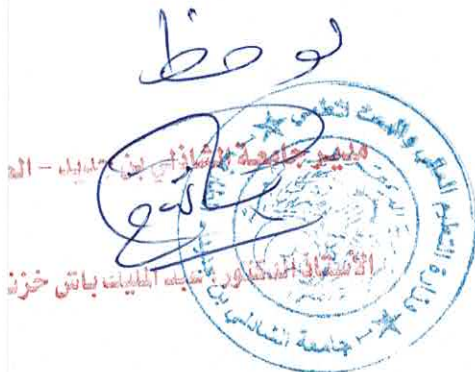 لوحظ
مدير جامعة الشاذلي بن جديد - الـ
الأستاذ الدكتور: عبد المليك باش خزنـ
وزارة التعليم العالي والبحث العلمي
جامعة الشاذلي بن